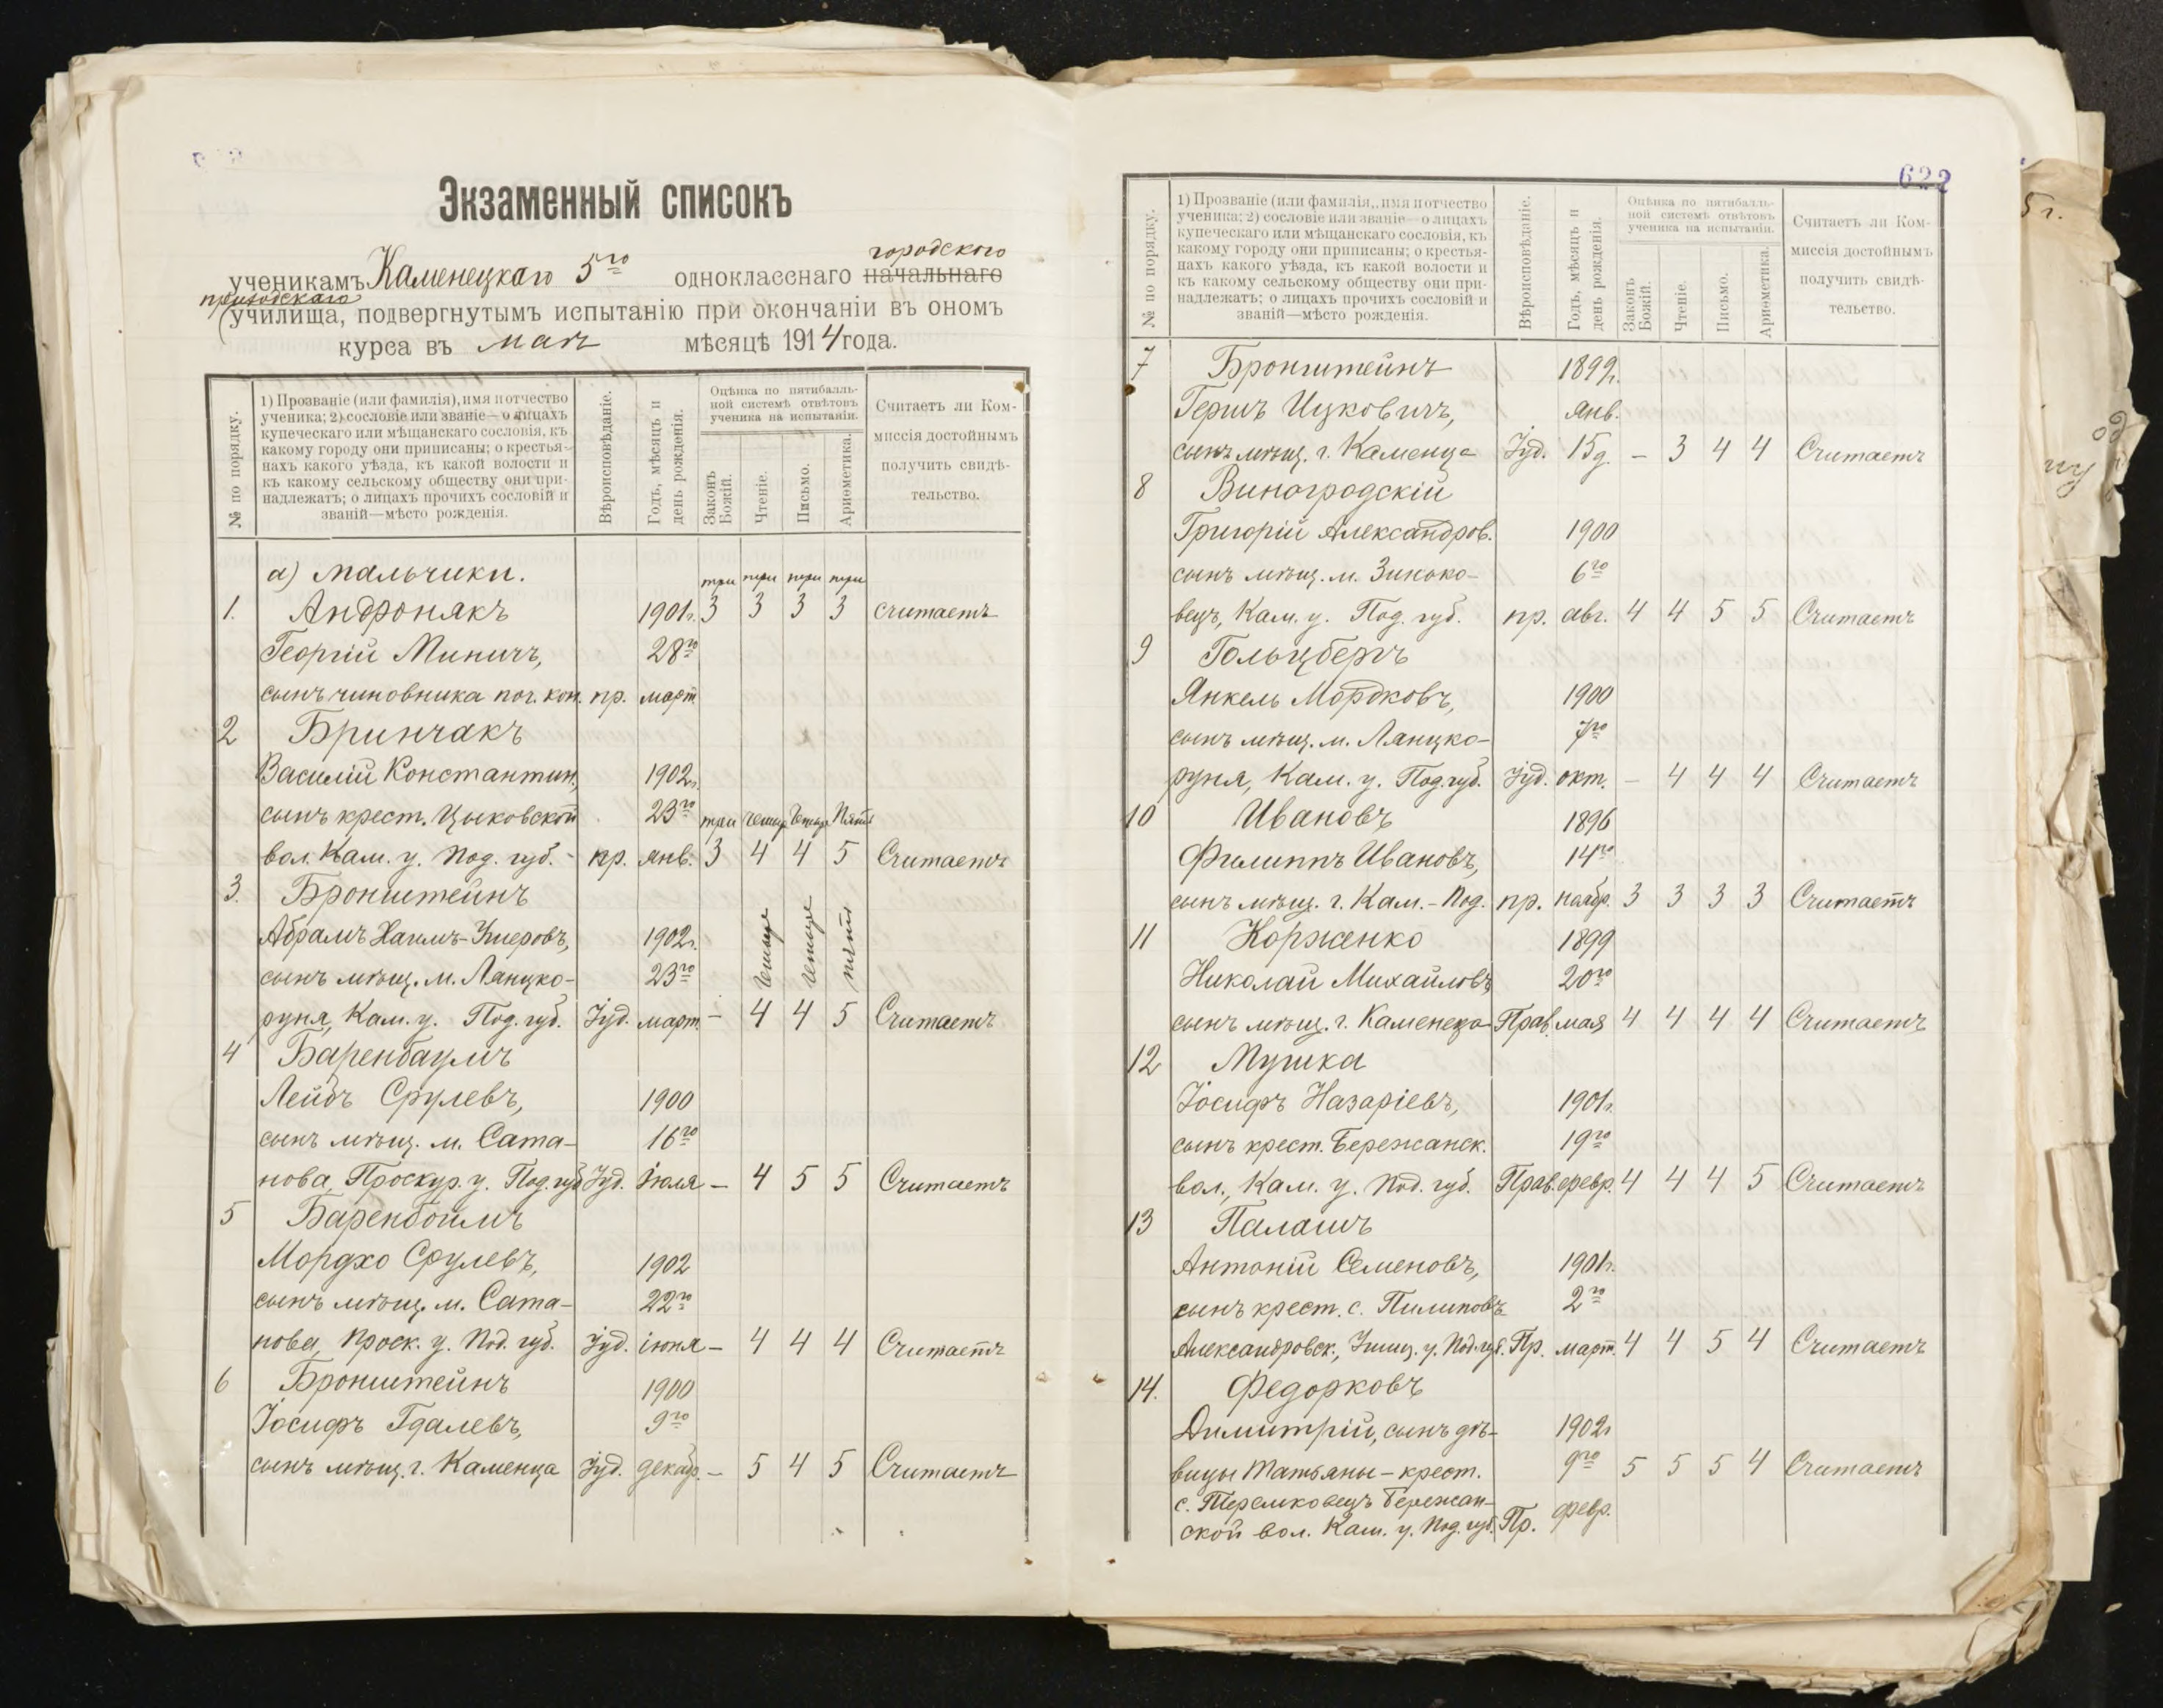 Экзаменный списокъ
городского
ученикамъ Каменецкаго 5го одноклассного начальнаго
приходскаго
училища, подвергнутымъ испытанію при окончаніи въ ономъ
курса въ маѣ мѣсяцѣ 1914 года.
№ по порядку.
1) Прозваніе (или фамилія), имя и отчество
ученика; 2) сословіе или званіе—о лицахъ
купеческаго или мѣщанскаго сословія, къ
какому городу они приписаны; о крестья-
нахъ какого уѣзда, къ какой волости и
къ какому сельскому обществу они при-
надлежатъ; о лицахъ прочихъ сословій и
званій—мѣсто рожденія.
Вѣроисповѣданіе.
Годъ, мѣсяцъ и
день рожденія.
Оцѣнка по пятибалль-
ной системѣ отвѣтовъ
ученика на испытаніи.
Законъ
Божій.
Чтеніе.
Письмо.
Ариѳметика.
Считаетъ ли Ком-
миссія достойнымъ
получить свидѣ-
тельство.
а) Мальчики. три три три три
1. Андронякъ 1901г. 3 3 3 3 считаетъ
Георгій Миничъ, 28го
сынъ чиновника поч. кон. пр. март.
2 Бринчакъ
Василій Константин., 1902г.
сынъ крест. Цыковской 23го три четыр четыр пять
вол. Кам. у. Под. губ. пр. янв. 3 4 4 5 Считаетъ
3. Бронштейнъ
Абрамъ Хаимъ-Умеровъ, 1902г. четыре четыре пять
сынъ мѣщ. м. Ланцко- 23го
руня, Кам. у. Под. губ. Іуд. март. – 4 4 5 Считаетъ
4 Баренбаумъ
Лейбъ Срулевъ, 1900
сынъ мѣщ. м. Сата- 16го
нова, Проскур. у. Под. губ Іуд. Іюля – 4 5 5 Считаетъ
5 Баренбоимъ
Мордхо Срулевъ, 1902
сынъ мѣщ. м. Сата- 22го
нова, Проск. у. Под. губ. Іуд. іюня – 4 4 4 Считаетъ
6 Бронштейнъ 1900
Іосифъ Гдалевъ, 9го
сынъ мѣщ. г. Каменца Іуд. декабр. – 5 4 5 Считаетъ
622
№ по порядку.
1) Прозваніе (или фамилія, имя и отчество
ученика; 2) сословіе или званіе—о лицахъ
купеческаго или мѣщанскаго сословія, къ
какому городу они приписаны; о крестья-
нахъ какого уѣзда, къ какой волости и
къ какому сельскому обществу они при-
надлежатъ; о лицахъ прочихъ сословій и
званій—мѣсто рожденія.
Вѣроисповѣданіе.
Годъ, мѣсяцъ и
день рожденія.
Оцѣнка по пятибалль-
ной системѣ отвѣтовъ
ученика на испытаніи.
Законъ
Божій.
Чтеніе.
Письмо.
Ариѳметика.
Считаетъ ли Ком-
миссія достойнымъ
получить свидѣ-
тельство.
7 Бронштейнъ 1899г.
Гершъ Ицковичъ, янв.
сынъ мѣщ. г. Каменца Іуд. 15д. – 3 4 4 Считаетъ
8 Виноградскій
Григорій Александров. 1900
сынъ мѣщ. м. Зинько- 6го
вецъ, Кам. у. Под. губ. пр. авг. 4 4 5 5 Считаетъ
9 Гольцбергъ
Янкель Мордковъ, 1900
сынъ мѣщ. м. Ланцко- 7го
руня, Кам. у. Под. губ. Іуд. окт. – 4 4 4 Считаетъ
10 Ивановъ 1896
Филиппъ Ивановъ, 14го
сынъ мѣщ. г. Кам.-Под. пр. ноябр. 3 3 3 3 Считаетъ
11 Корженко 1899
Николай Михайловъ, 20го
сынъ мѣщ. г. Каменеца Прав. мая 4 4 4 4 Считаетъ
12 Мушка
Іосифъ Назаріевъ, 1901г.
сынъ крест. Бережанск. 19го
вол., Кам. у. Под. губ. Прав. февр. 4 4 4 5 Считаетъ
13 Палашъ
Антоній Семеновъ, 1901г.
сынъ крест. с. Пилиповъ 2го
Александровск., Ушиц. у. Под. губ. Пр. март. 4 4 5 4 Считаетъ
14. Федорковъ
Димитрій, сынъ дѣ- 1902г
вицы Татьяны – крест. 9го 5 5 5 4 Считаетъ
с. Тпремковецъ Бережан-
ской вол. Кам. у. Под. губ. Пр. февр.
5 г.